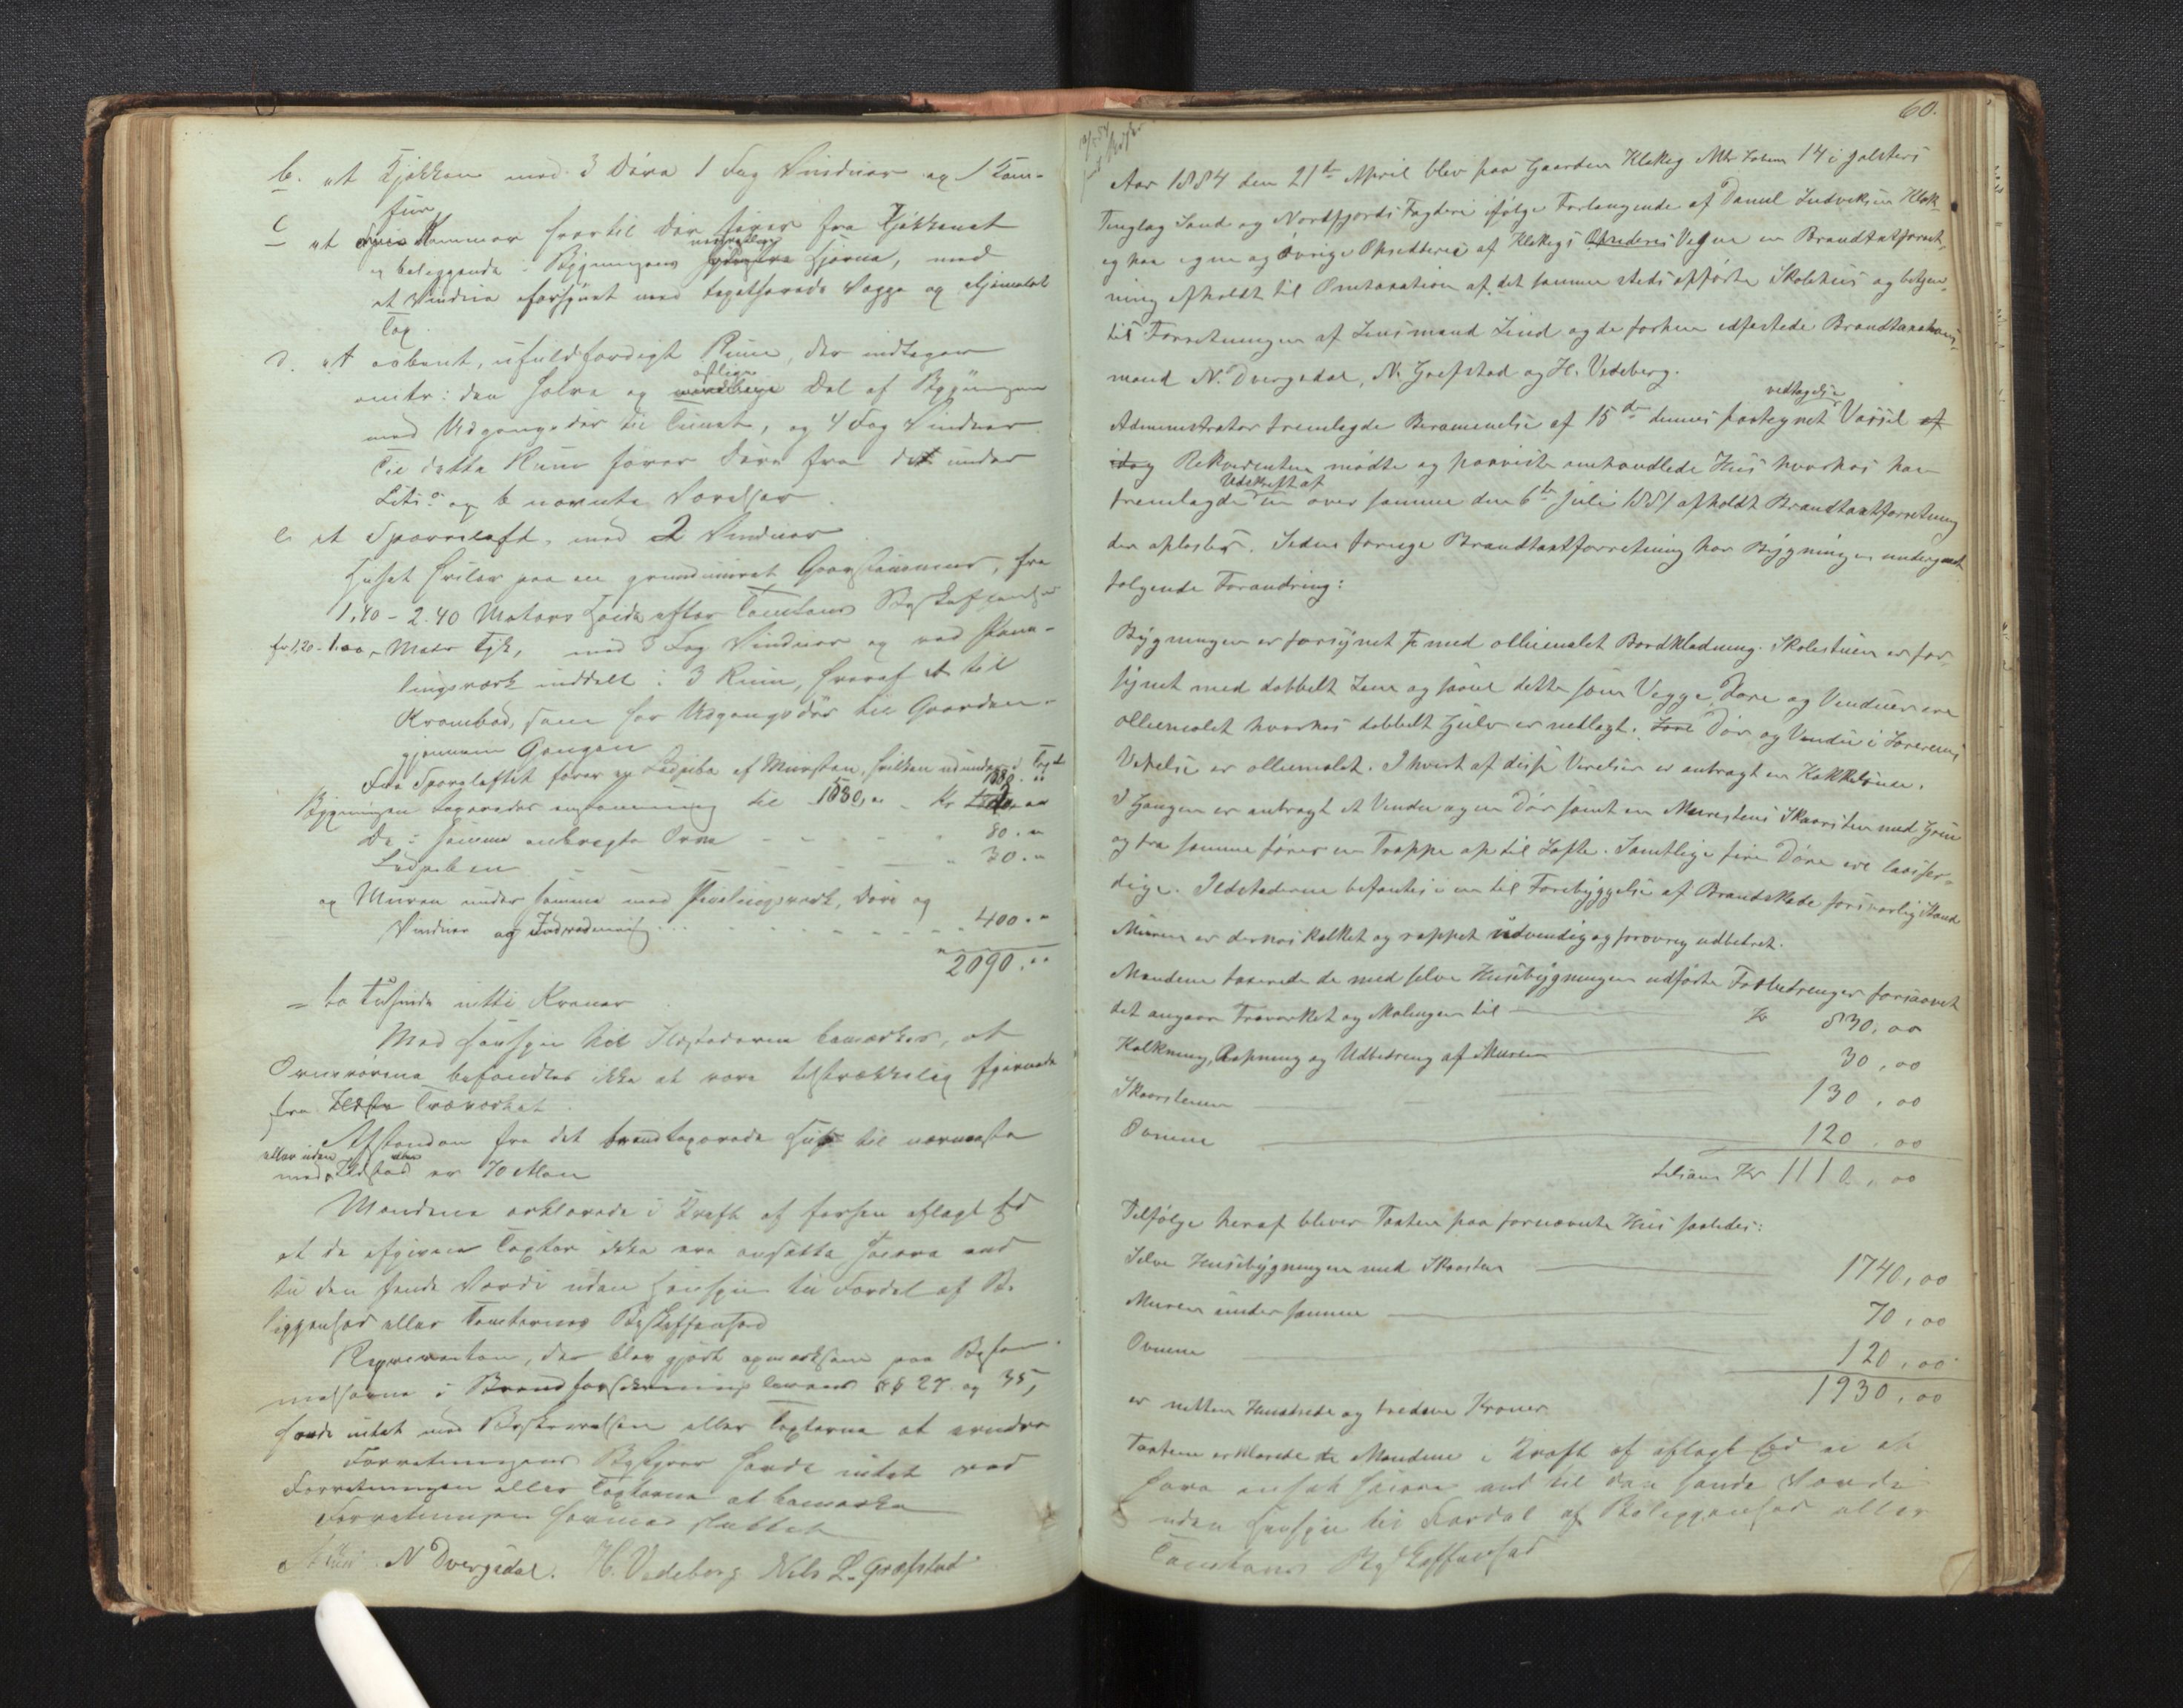 b. et Kjøkken med 3 Døre 1 Fag Vinduer og 1 Kom-
fur
c et Spiskammer hvortil Dør fører fra Kjøkkenet
og beliggende i Bygningens Hjørne, med
et Vindue forsynet med Vægge og
Tag.
d. et aabent, ufuldfærdigt Rum, der indtager
omtr: den halve og østlige Del af Bygningen
med Udgangsdør til Tunet, og 4 Fag Vinduer
Til dette Rum fører Døre fra det under
Litr: a og b nævnte Værelser
e et Sparreloft, med 2 Vinduer
Huset hviler paa en grundmuret Graastensmur, fra
1,40 - 2.40 Meters Høide efter Tomtens Beskaffenhed
fra 1,20 - 1.00, Meter Tyk, med 3 Fag Vinduer og ved Pane-
lingsværk inddelt i 3 Rum, hvoraf et til
Krambod, som har Udgangsdør til Gaarden
gjennem Gangen
Fra Spareloftet fører en Ludpibe af Mursten, hvilken udmunder i Taget
Bygningen taxeredes til 1580,00 Kr 1580.00
De i samme anbragte Ovne - - - 80.00
Ludpiben - - - 30.00
og Muren under samme med Panelingsværk, Døre og
Vinduer og Indredning - - - 400.00
2090.00
= to Tusinde nitti Kroner
Med Hensyn til Ildstederne bemærkes, at
Ovnsrørene befandtes ikke at være tilstrækkelig fjernede
fra Træværket
Afstanden fra det brandtaxerede Hus til nærmeste
eller uden
med Ildsted er 70 Alen
Mændene erklærede i Kraft af forhen aflagt Ed
at de afgivne Taxter ikke ere ansatte høiere end
til den sande Værdi uden Hensyn til Fordel af Be-
liggenhed eller Tomternes Beskaffenhed
Reqvirenten, der blev gjort opmærksom paa Bestem-
melserne i Brandforsikrings Lovens §§ 27 og 35,
havde intet mod Beskrivelsen eller Taxterne at erindre
Forretningens Bestyrer havde intet ved
Forretningen eller Taxterne at bemærke
Forretningen hermed sluttet
N Dvergsdal. H. Vedeberg Nils L. Græfstad
60.
Aar 1884 den 21de April blev paa Gaarden Klakeg Mtr Løbenr 14 i Jølsters
Tinglag Sønd og Nordfjords Fogderi ifølge Forlangende af Daniel Ludviksen Klak-
eg paa egne og øvrige Opsidderes af Klakegs Opsideres Vegne en Brandtaxtforret-
ning afholdt til Omtaxation af det samme steds opførte Skolehus og betjen-
tes Forretningen af Lensmand Lind og de forhen edfæstede Brandtaxations-
mænd N. Dvergsdal, N. Græfstad og H. Vedeberg.
vedtagelses
Administrator fremlagde Berammelse af 15de dennes paategnet Varsel af
idag Rekvirenten mødte og paaviste omhandlede Hus hvorhos han
Udskrift af
fremlagde en over samme den 6te Juli 1881 afholdt Brandtaxtforretning
der oplæstes. Siden forrige Brandtaxtforretning har Bygningen undergaaet
følgende Forandring:
Bygningen er forsynet med olliemalet Bordklædning. Skolestuen er for-
synet med dobbelt Lem og saavel dette som Vægge, Døre og Vinduer ere
olliemalet hvorhos dobbelt Gulv er nedlagt. Dør og Vindu i Lærerens
Værelse er olliemalet. I hvert af disse Værelser er anbragt en Kakkelovn.
I Gangen er anbragt et Vindu og en Dør samt en Murstens Skaarsten med Grue
og fra samme fører en Trappe op til Lofte. Samtlige fire Døre ere laasfær-
dige. Ildstederne befantes i en til Forebyggelse af Brandskade forsvarlig Stand
Muren er derhos kalket og rappet udvendig og forøvrig udbedret.
Mændene taxerede de med selve Husebygningen udførte Forbedringer forsaavidt
det angaar Træværket og Malingen til Kr 830,00
Kalkning, Rapning og Udbedring af Muren 30,00
Skaarstenen 130,00
Ovnene 120,00
tilsam Kr 1110,00
Ifølge heraf bliver Taxten paa fornævnte Hus saaledes:
Selve Husebygningen med Skaarsten 1740,00
Muren under samme 70,00
Ovnene 120,00
1930,00
er nitten Hundrede og tredive Kroner.
Taxterne erklærede de Mændene i Kraft af aflagt Ed ei at
være ansat høiere end til den sande Værdi
uden Hensyn til Fordel af Beliggenhed eller
Tomtens Beskaffenhed